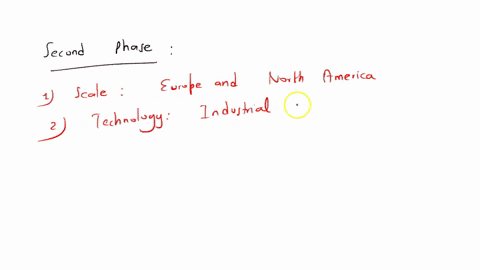 Second Phase :
1) Scale : Europe and North America
2) Technology: Industrial